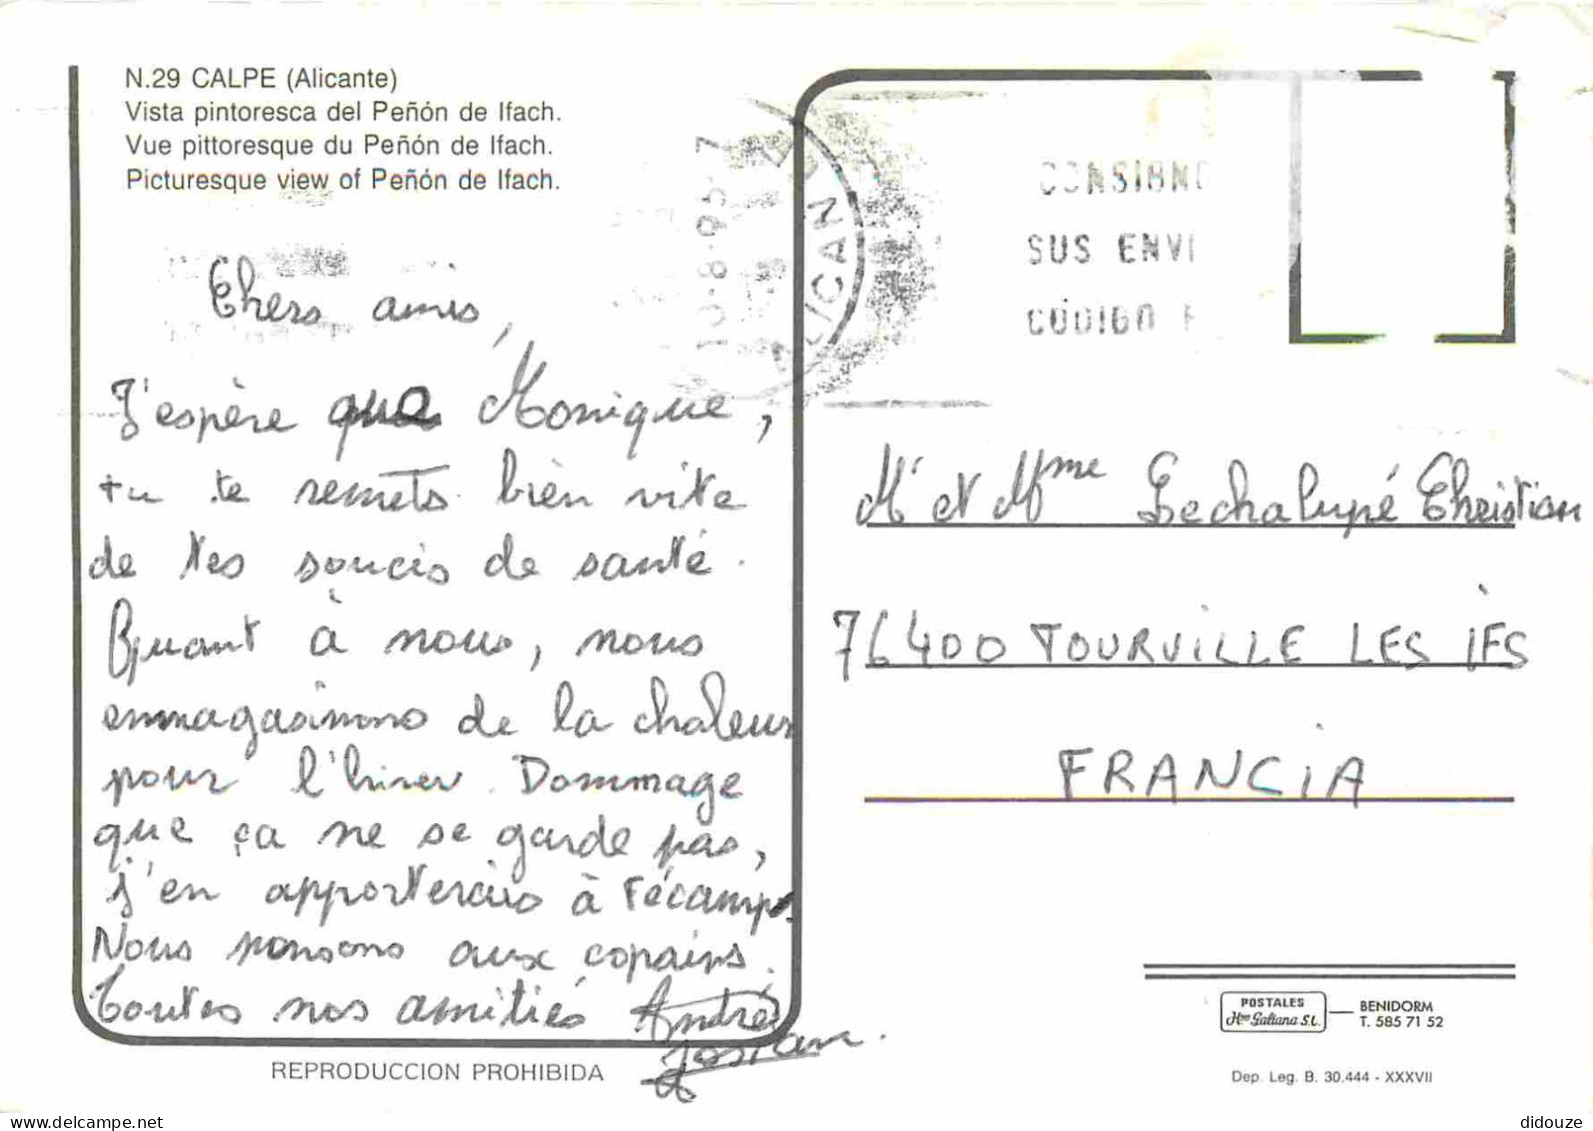 N.29 CALPE (Alicante)
Vista pintoresca del Peñón de Ifach.
Vue pittoresque du Peñón de Ifach.
Picturesque view of Peñón de Ifach.
Chers amis,
J'espère que Monique,
tu te remets bien vite
de tes soucis de santé.
Quant à nous, nous
emmagasinons de la chaleur
pour l'hiver. Dommage
que ça ne se garde pas,
j'en apporterais à Fécamp.
Nous pensons aux copains.
Toutes nos amitiés André
Josiane.
REPRODUCCION PROHIBIDA
10-8-95-7
ALICAN
CONSIGN
SUS ENVI
CÓDIGO P
Mr et Mme Lechalupé Christian
76400 TOURVILLE LES IFS
FRANCIA
POSTALES
Hnos Galiana S.L.
BENIDORM
T. 585 71 52
Dep. Leg. B. 30.444 - XXXVII
delcampe.net
didouze